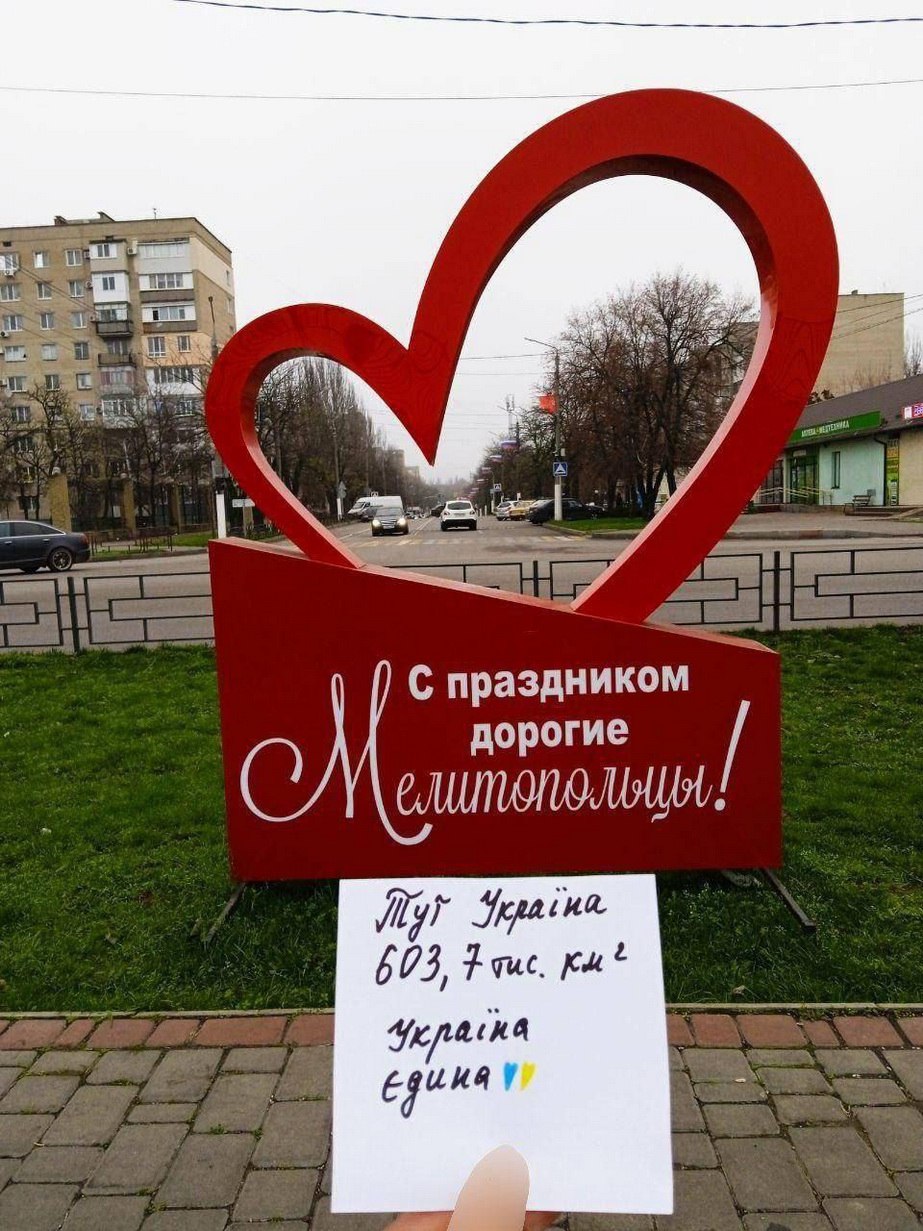 АПТЕКА МЕДТЕХНИКА
С праздником
дорогие
Мелитопольцы!
Тут Україна
603,7 тис. км²
Україна
єдина